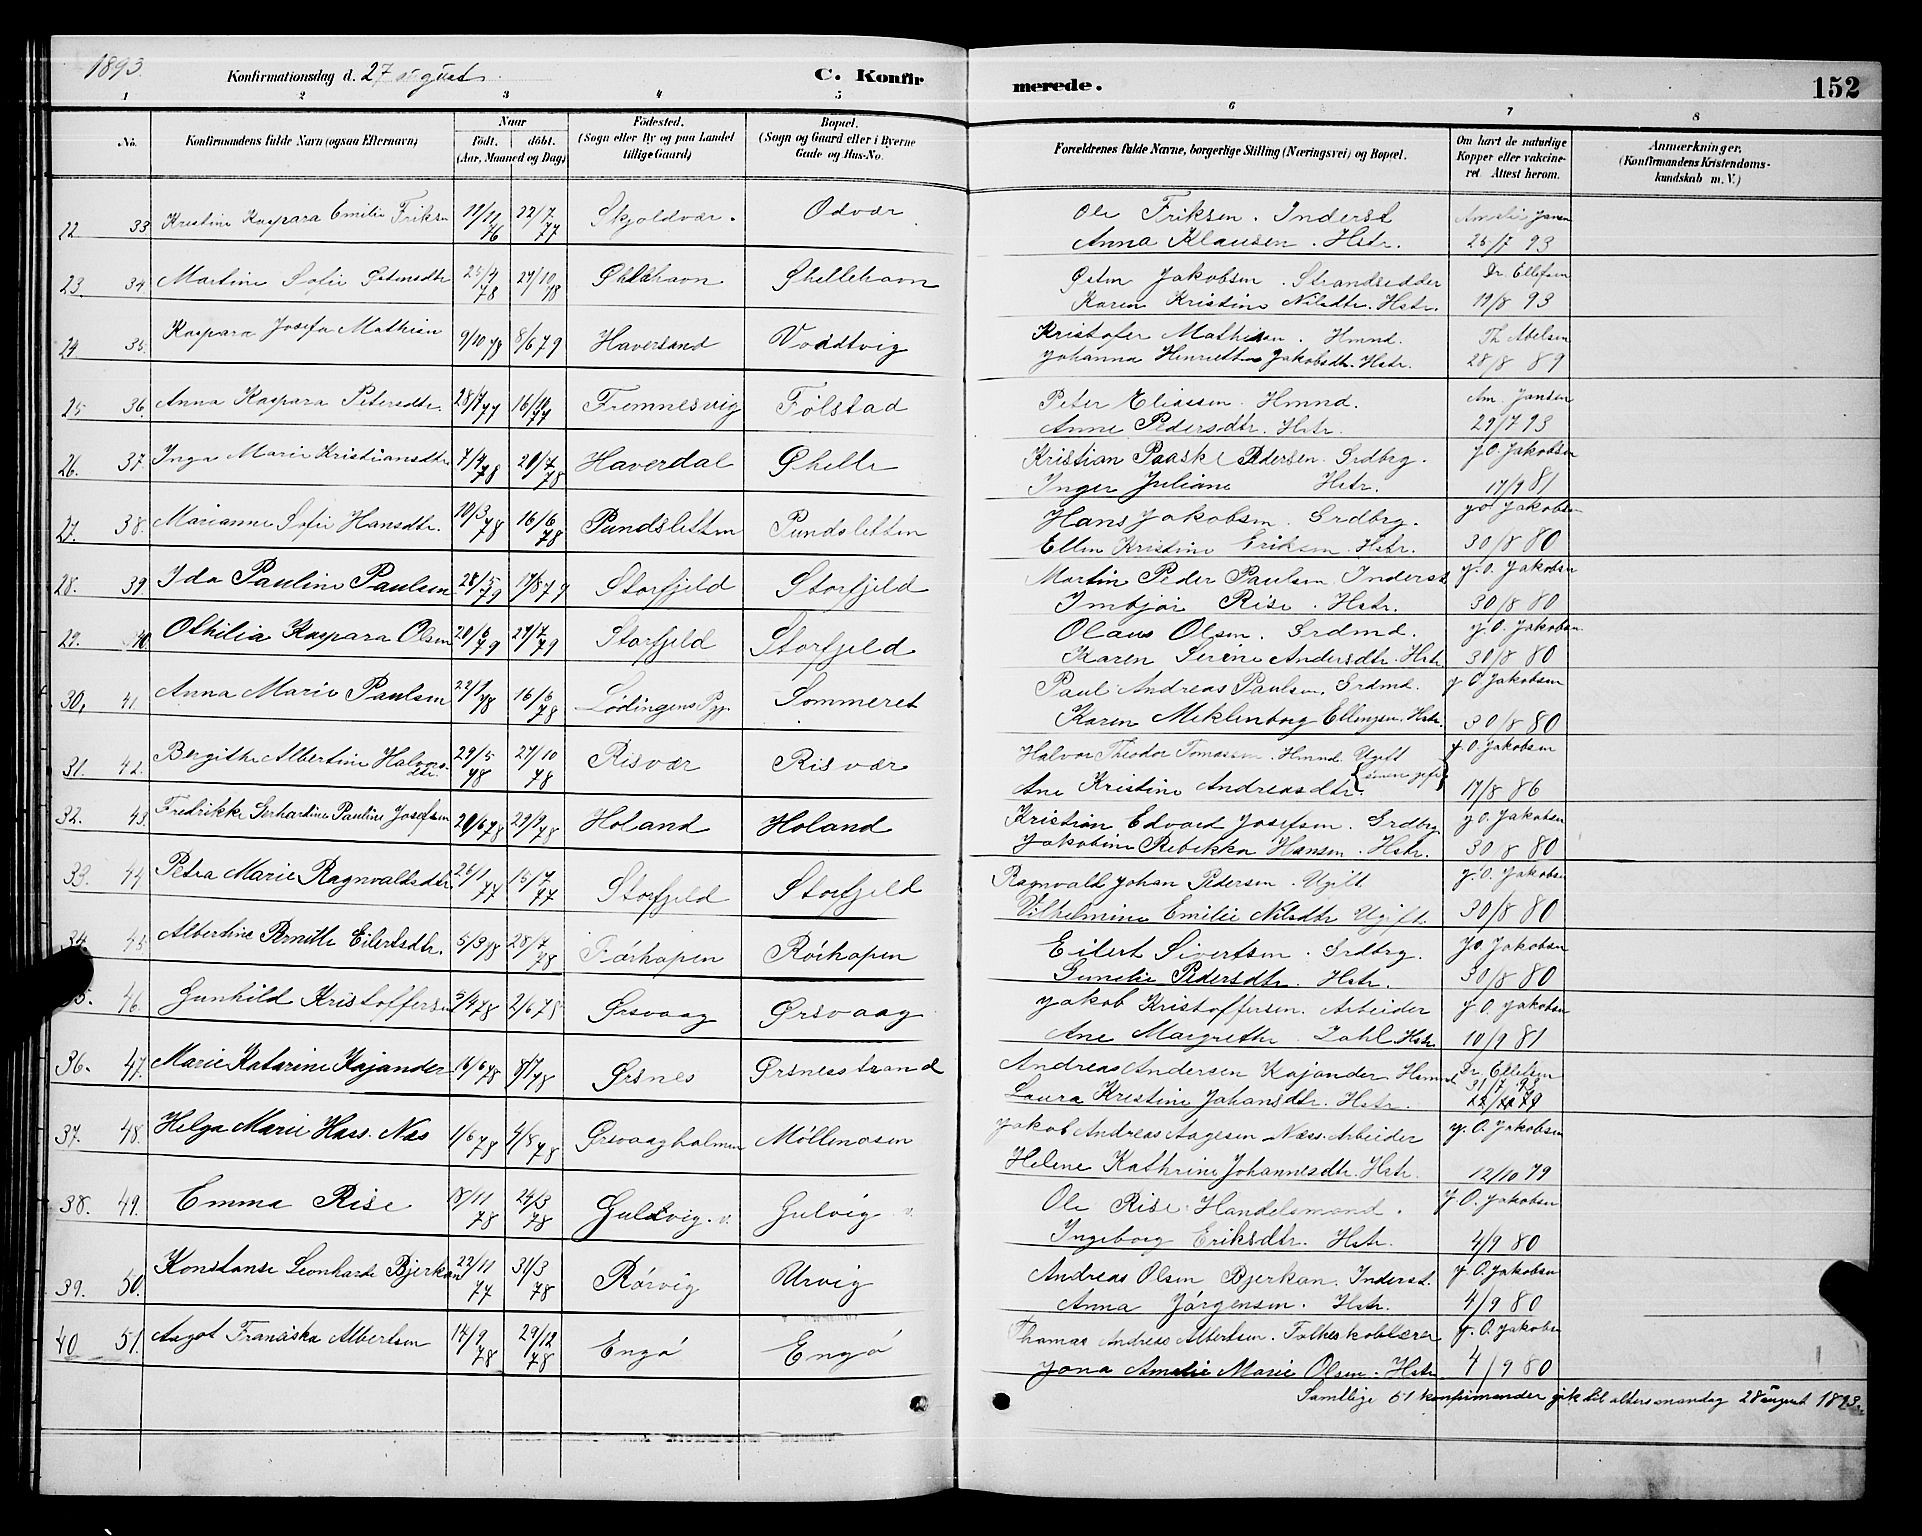 1893. Konfirmationsdag d. 27 august C. Konfirmerede. 152
1 2 3 4 5 6 7 8
No. Konfirmandens fulde Navn (ogsaa Efternavn) Naar Födt. döbt. (Aar, Maaned og Dag) Födested. (Sogn eller By og paa Landet tillige Gaard) Bopæl. (Sogn og Gaard eller i Byerne Gade og Hus-No. Forældrenes fulde Navne, borgerlige Stilling (Næringsvei) og Bopæl. Om havt de naturlige Kopper eller vakcineret. Attest herom. Anmærkninger. (Konfirmandens Kristendomskundskab m. V.)
22 33 Kristine Kaspara Emilie Friksen 11/11 76 22/7 77 Skjoldvær. Odvær Ole Friksen. Inderst
Anna Klausen. Hstr. 25/7 93
23. 34 Martine Sofie 25/4 78 27/10 78 Skellehavn Jakobsen. Strandsidder Dr. Ellefsen
Karen Kristine Nilsdtr. Hstr. 19/8 93
24 35. Kaspara Josefa Mathisen 9/10 78 8/6 79 Haversand Voddtvig Kristofer Mathisen. Hmnd. Th Abelsen
Johanna Henriette Jakobsdtr. Hstr. 28/8 89
25 36. Anna Kaspara Petersdtr. 28/7 77 16/10 77 Fremnesvig Fölstad Peter Eliassen. Hmnd. Am. Jansen
Anne Pedersdtr. Hstr. 29/7 93
26. 37 Inga Marie Kristiansdtr 7/4 78 20/7 78 Haverdal Kristian Paaske Pedersen. Grdbrg. J. O. Jakobsen
Inger Juliane Hstr. 17/9 81
27. 38. Marianne Sofie Hansdtr. 10/3 78 16/6 78 Pundsletten Pundsletten Hans Jakobsen. Grdbrg. J O Jakobsen
Ellen Kristine Eriksen. Hstr. 30/8 80
28. 39. Ida Pauline Paulsen 28/5 79 17/8 79 Storfjeld Storfjeld Martin Peder Paulsen. Inderst J. O. Jakobsen
Imbjör Rise. Hstr. 30/8 80
29. 40. Othilia Kaspara Olsen 20/6 79 27/7 79 Storfjeld Storfjeld Olaus Olsen. Grdmd. J. O. Jakobsen
Karen Serine Andersdtr. Hstr 30/8 80
30, 41 Anna Marie Paulsen 22/1 78 16/6 78 Lödingens Pgj. Sommeret Paul Andreas Paulsen. Grdmd. J. O. Jakobsen
Karen Meklenborg Ellingsen. Hstr. 30/8 80
31. 42. Bergithe Albertine Halvorsdtr. 29/5 78 27/10 78 Risvær Risvær Halvor Theodor Tomassen. Hmnd. Ugift J. O. Jakobsen
Ane Kristine Andreasdtr. 17/8 86
32. 43. Fredrikke Gerhardine Pauline Josefsen 20/6 78 29/9 78 Holand Holand Kristian Edvard Josefsen. Grdbrg J. O. Jakobsen
Jakobine Rebekka Hansen. Hstr. 30/8 80
33. 44 Petra Marie Ragnvaldsdtr. 26/1 77 15/7 77 Storfjeld Storfjeld Ragnvald Johan Pedersen. Ugift J. O. Jakobsen
Vilhelmine Emilie Nilsdtr Ugift. 30/8 80
34 45. Albertine Pernille Eilertsdtr. 5/3 78 28/7 78 Rörhopen Eilert Sivertsen. Grdbrg. J. O. Jakobsen
Gunelie Pedersdtr. Hstr. 30/8 80
35. 46. Gunhild Kristoffersen 5/4 78 2/6 78 Örsvaag Örsvaag Jakob Kristoffersen. Arbeider J. O. Jakobsen
Ane Margrethe Dahl Hstr 10/9 81
36. 47. Marie Katarine Kajander 16/6 78 8/7 78 Örsnes Örsnesstrand Andreas Andersen Kajander Hmnd. Dr. Ellefsen
Laura Kristine Johansdtr. Hstr. 31/7 93
37. 48. Helga Marie Hass. Næs 1/6 78 4/8 78 Örsvaagholmen Möllenosen Jakob Andreas Aagesen Næss. Arbeider J. O. Jakobsen
Helene Kathrine Johannesdtr. Hstr. 12/10 79
38. 49. Emma Rise 18/11 78 24/3 78 Guldvig. v. Gulvig v. Ole Rise. Handelsmand. J. O. Jakobsen
Ingeborg Eriksdtr. Hstr. 4/9 80
39. 50. Konstanse Leonharde Bjerkan 22/11 77 31/3 78 Rörvig Urvig Andreas Olsen Bjerkan. Inderst. J. O. Jakobsen
Anna Jörgensen. Hstr. 4/9 80
40 51. Aagot Fransiska Albertsen 14/9 78 29/12 78 Engö Engö Thomas Andreas Albertsen. Folkeskolelærer J. O. Jakobsen
Jona Amalie Marie Olsen. Hstr 4/9 80
Samtlige 51 konfirmander gik til alters mandag 28 august 1893.